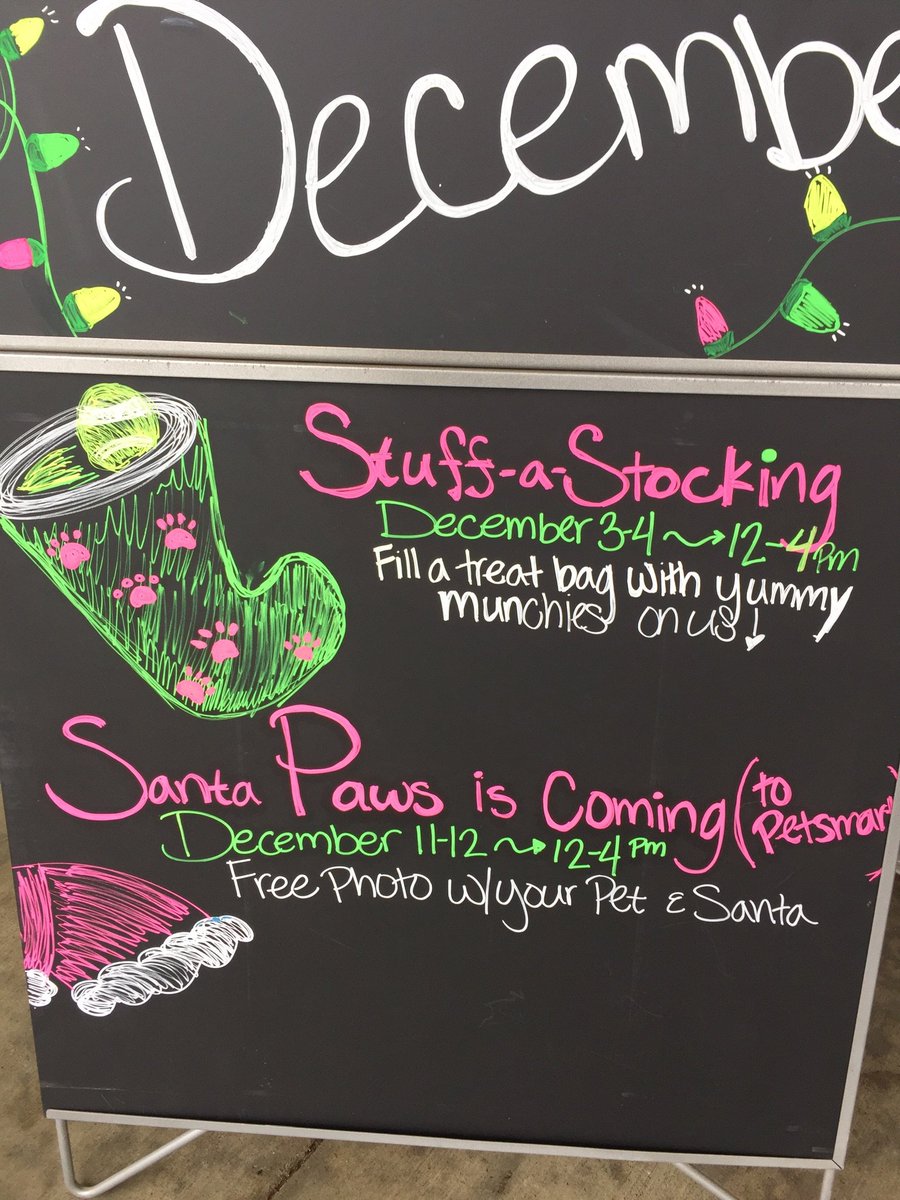 Decembe
Stuff-a-Stocking
December 3-4 → 12-4pm
Fill a treat bag with yummy
munchies on us!
Santa Paws is Coming (to
Petsmart)
December 11-12 → 12-4 pm
Free Photo w/your Pet & Santa